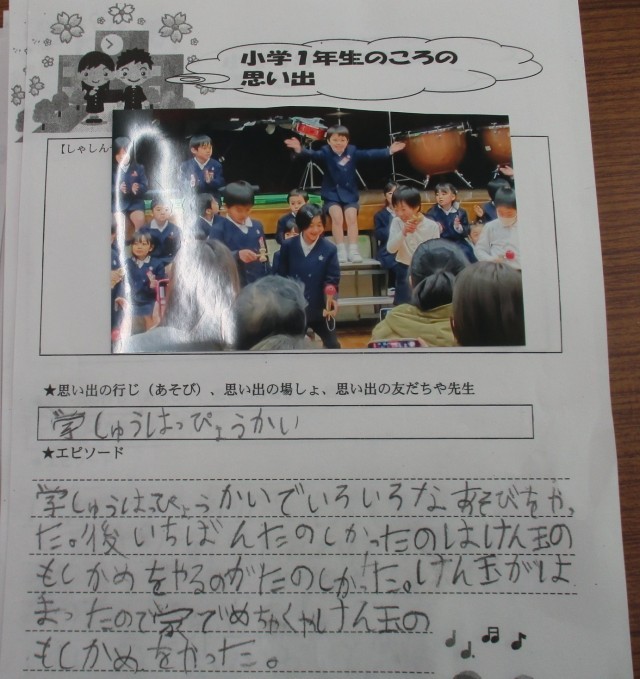 小学1年生のころの
思い出
【しゃしん
★思い出の行じ（あそび）、思い出の場しょ、思い出の友だちや先生
学しゅうはっぴょうかい
★エピソード
学しゅうはっぴょうかいでいろいろなあそびをやっ
た。後いちばんたのしかったのはけん玉の
もしかめをやるのがたのしかった。けん玉がはし
まったので家でめちゃくちゃけん玉の
もしかめをやった。